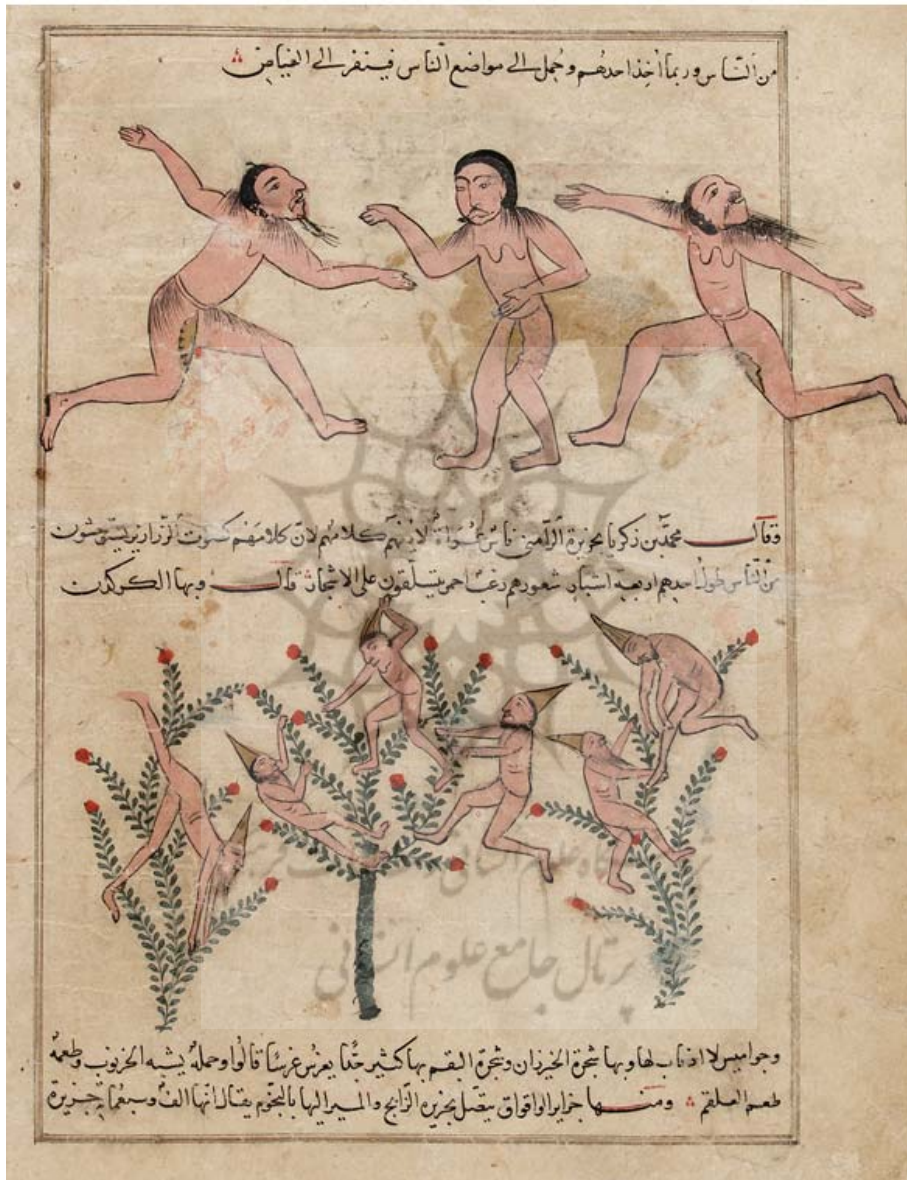 من الناس وربما اخذ احدهم وحمل الى مواضع الناس فينفر الى الغياض
وقال محمد بن زكريا بجزيرة الرامني ناس عراة لا يفهم كلامهم لان كلامهم كصوت الزرازير يستوحشون
من الناس طول احدهم اربعة اشبار شعورهم زغب احمر يتسلقون على الاشجار قال وبها الكركدن
پرتال جامع علوم انسانی
وجواميس لا اذناب لها وبها شجرة الخيزران وشجرة البقم بها كثير جدا يغرس غرسا قالوا وحمله يشبه الخرنوب وطعمه
طعم العلقم ومنها جزاير الواقواق يتصل بجزيرة الزابج والمسير اليها بالنجوم يقال انها الف وسبعماية جزيرة